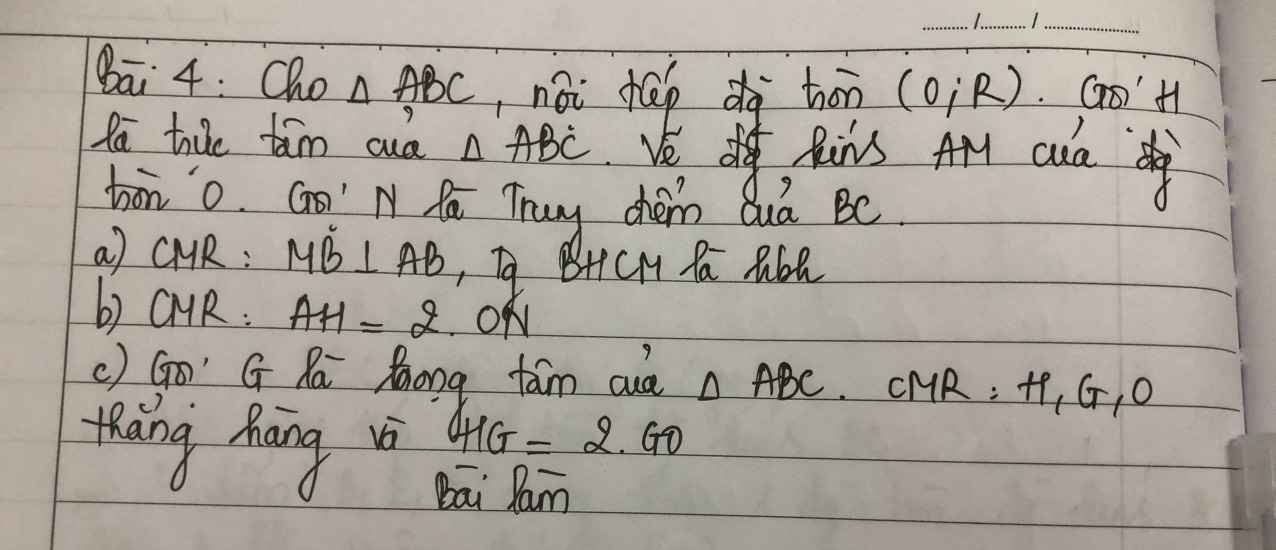 Bài 4: Cho Δ ABC, nội tiếp đg tròn (O;R). Gọi H
là trực tâm của Δ ABC. Vẽ đg kính AM của đg
tròn O. Gọi N là Trung điểm của BC.
a) CMR: MB ⊥ AB, Tg BHCM là hbh
b) CMR: AH = 2. ON
c) Gọi G là trọng tâm của Δ ABC. CMR: H, G, O
thẳng hàng và HG = 2. GO
Bài làm